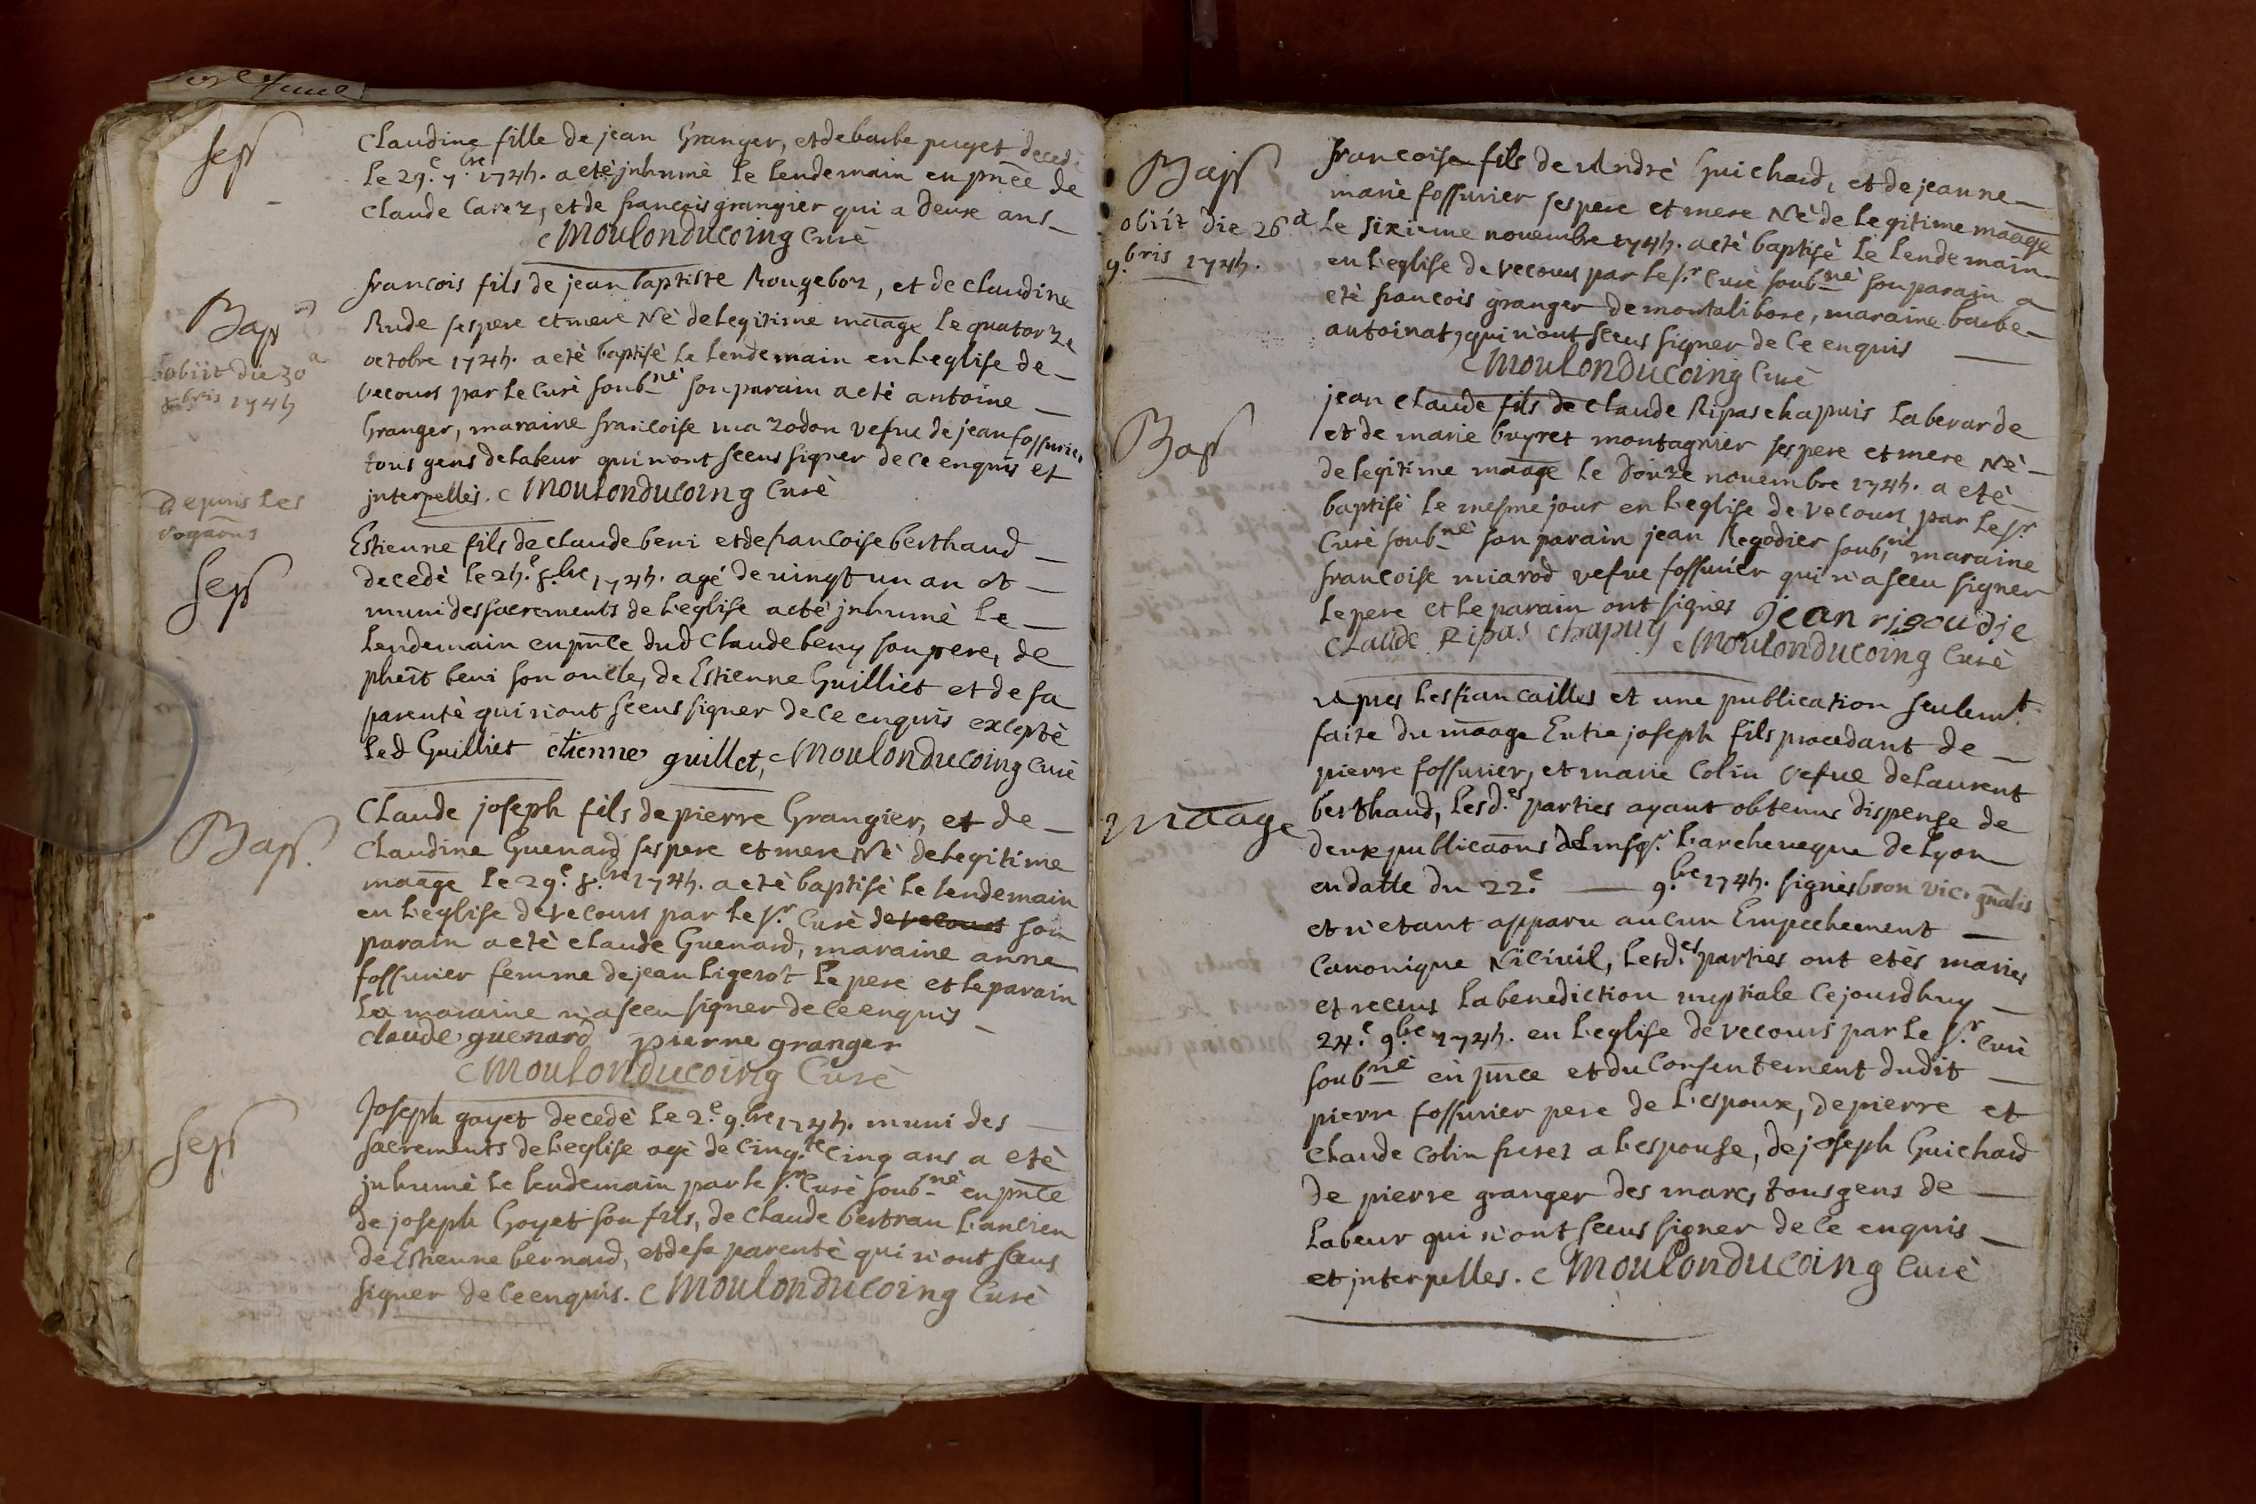 Sep
Claudine fille de jean Granger, et de barbe puget deced.
le 29.e 7.bre 1724. a eté jnhumé le lendemain en pnce de
Claude Carez, et de francois grangier qui a deux ans
Moulonducoing Curé
Bap
obiit die 30a
bris 1724
francois fils de jean baptiste Rougeboz, et de Claudine
Rude ses pere et mere Né de legitime maage le quatorze
octobre 1724. a eté baptisé le lendemain en l'eglise de
vecours par le Curé soubné son parain a eté antoine
Granger, maraine francoise mazodon vefue de jean fossurier
tous gens de labeur qui n'ont sceus signer de ce enquis et
jnterpellés. Moulonducoing Curé
depuis les
vogaons
Sep
Estienne fils de claude beni et de francoise berthaud
decedé le 24.e 8.bre 1724. agé de vingt un an et
muni des sacrements de l'eglise a eté jnhumé le
lendemain en pnce dud Claude beny son pere, de
phert beni son oncle, de Estienne Guilliet et de sa
parenté qui n'ont sceus signer de ce enquis excepté
led Guilliet etienne guillet, Moulonducoing Curé
Bap.
Claude joseph fils de pierre Grangier, et de
Claudine Guenard ses pere et mere Né de legitime
maage le 29.e 8.bre 1724. a eté baptisé le lendemain
en l'eglise de vecours par le sr. Curé de vecours son
parain a eté claude Guenard, maraine anne
fossurier femme de jean ligerot le pere et le parain
La maraine n'a sceu signer de ce enquis
claude guenard pierre granger
Moulonducoing Curé
Sep
Joseph goyet decedé le 2.e 9.bre 1724. muni des
sacrements de l'eglise agé de cinq.te cinq ans a eté
jnhumé le lendemain par le sr. Curé soubné en pnce
de joseph Goyet son fils, de Claude bertrau l'ancien
de Estienne bernard, et de sa parenté qui n'ont sceus
signer de ce enquis. Moulonducoing Curé
Bap
obiit die 26a
9.bris 1724.
francoise fils de André Guichard, et de jeanne
marie fossurier ses pere et mere Né de legitime maage
le sixieme novembre 1724. a eté baptisé le lendemain
en l'eglise de vecours par le sr. Curé soubné son parain a
eté francois granger de montalibore, maraine barbe
antoinat, qui n'ont sceus signer de ce enquis
Moulonducoing Curé
Bap
jean claude fils de claude Ripas chapuis laberarde
et de marie buyret montagnier ses pere et mere Né
de legitime maage le douze novembre 1724. a eté
baptisé le mesme jour en l'eglise de vecours par le sr.
Curé soubné son parain jean Regodier soubné maraine
francoise miarod vefue fossurier qui n'a sceu signer
le pere et le parain ont signés jean rigoudje
Claude Ripas chapuy Moulonducoing Curé
maage
Apres les fiancailles et une publication seulemt.
faite du maage Entre joseph fils procedant de
pierre fossurier, et marie Colin vefue de Laurent
berthaud, lesd.es parties ayant obtenus dispense de
deux publicaons de msgr. l'archeveque de Lyon
en datte du 22.e 9.bre 1724. signés bron vic. gnalis
et n'etant apparu aucun Empechement
Canonique Ni Civil, lesd.es parties ont etés mariés
et receus la benediction nuptiale ce jourdhuy
24.e 9.bre 1724. en l'eglise de vecours par le sr. Curé
soubné en pnce et du Consentement dudit
pierre fossurier pere de l'espoux, de pierre et
Claude Colin freres a l'espouse, de joseph Guichard
de pierre granger des marcs tous gens de
labeur qui n'ont sceus signer de ce enquis
et jnterpelles. Moulonducoing Curé